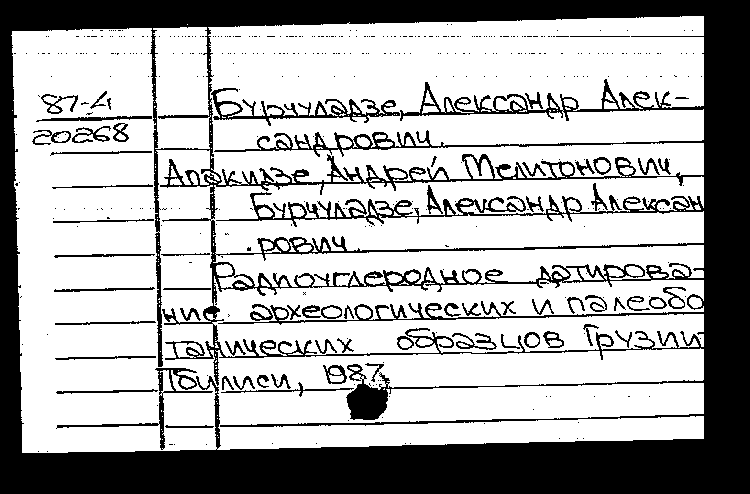 87-4
20268
Бурчуладзе, Александр Алек-
сандрович.
Апакидзе, Андрей Мелитонович,
Бурчуладзе, Александр Алексан
рович
Радиоуглеродное датирова-
ние археологических и палеобо
танических образцов Грузии
Тбилиси, 1987